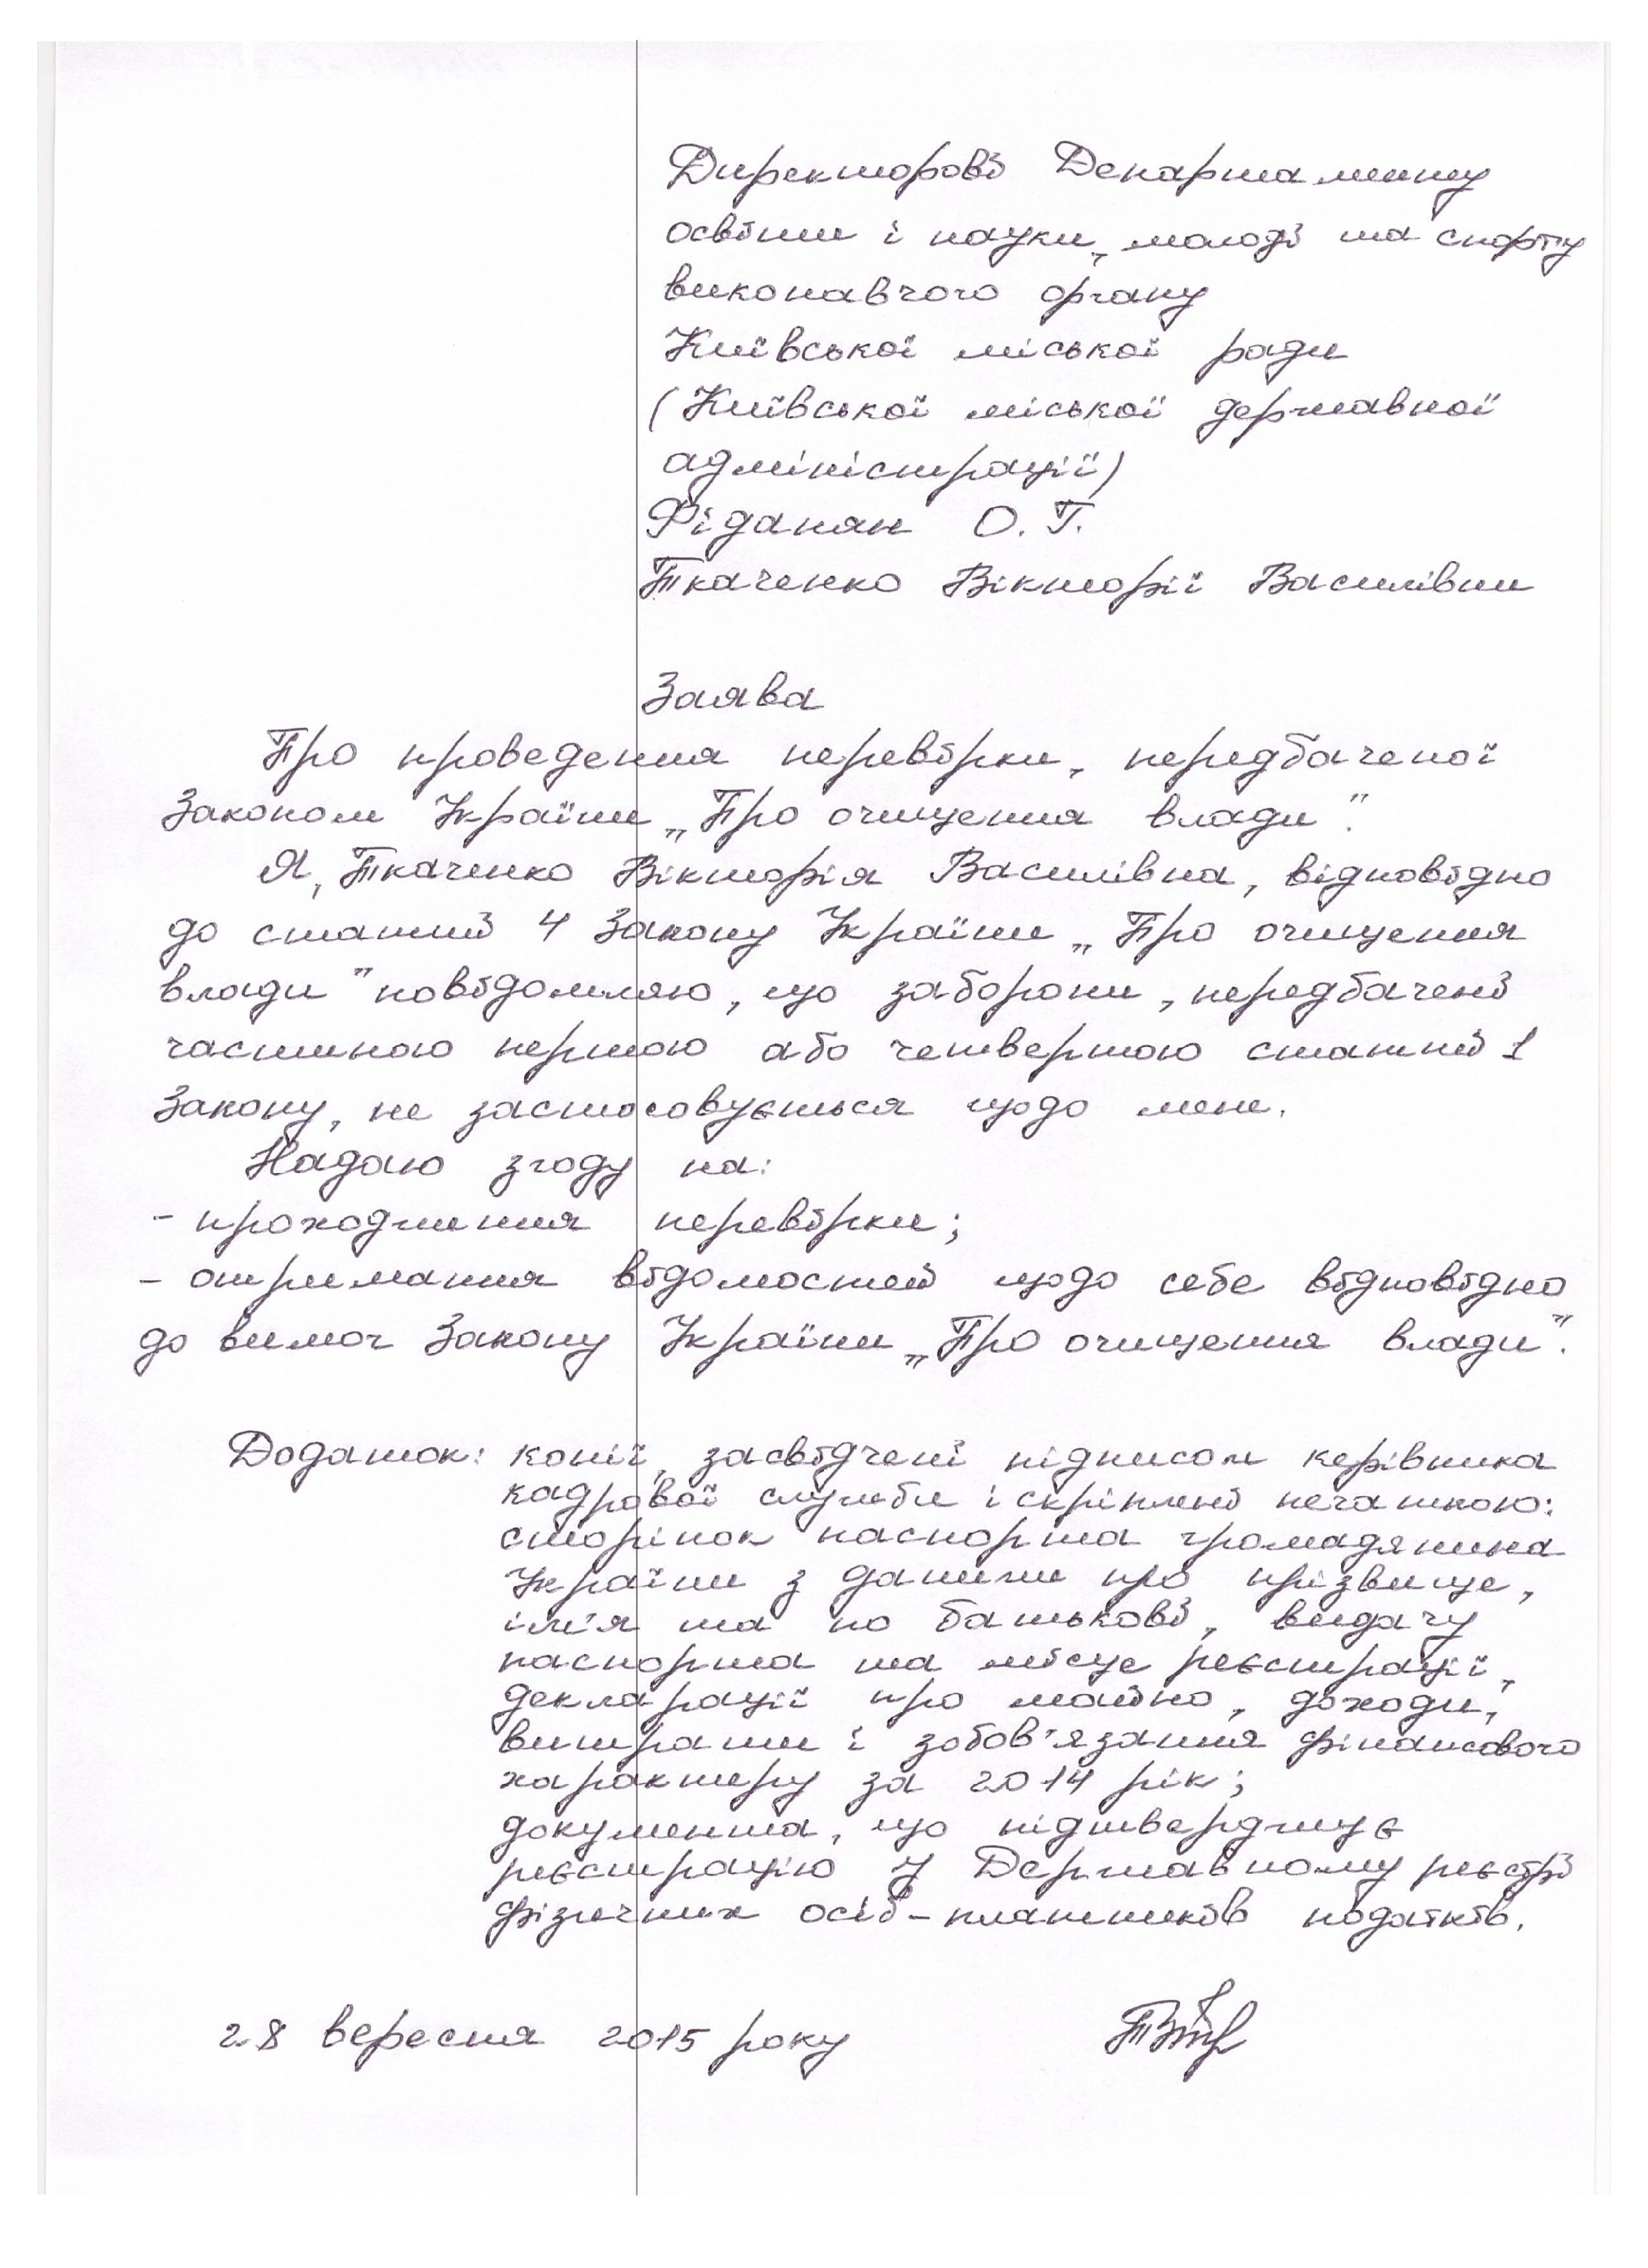 Директорові Департаменту
освіти і науки, молоді та спорту
виконавчого органу
Київської міської ради
(Київської міської державної
адміністрації)
Фіданян О. Г.
Ткаченко Вікторії Василівни
Заява
Про проведення перевірки, передбаченої
Законом України „Про очищення влади".
Я, Ткаченко Вікторія Василівна, відповідно
до статті 4 Закону України „Про очищення
влади" повідомляю, що заборони, передбачені
частиною першою або четвертою статті 1
Закону, не застосовується щодо мене.
Надаю згоду на:
- проходження перевірки;
- отримання відомостей щодо себе відповідно
до вимог Закону України „Про очищення влади".
Додаток: копії, засвідчені підписом керівника
кадрової служби і скріплені печаткою:
сторінок паспорта громадянина
України з даними про прізвище,
ім'я та по батькові, видачу
паспорта та місце реєстрації,
декларації про майно, доходи,
витрати і зобов'язання фінансового
характеру за 2014 рік;
документа, що підтверджує
реєстрацію у Державному реєстрі
фізичних осіб-платників податків.
28 вересня 2015 року